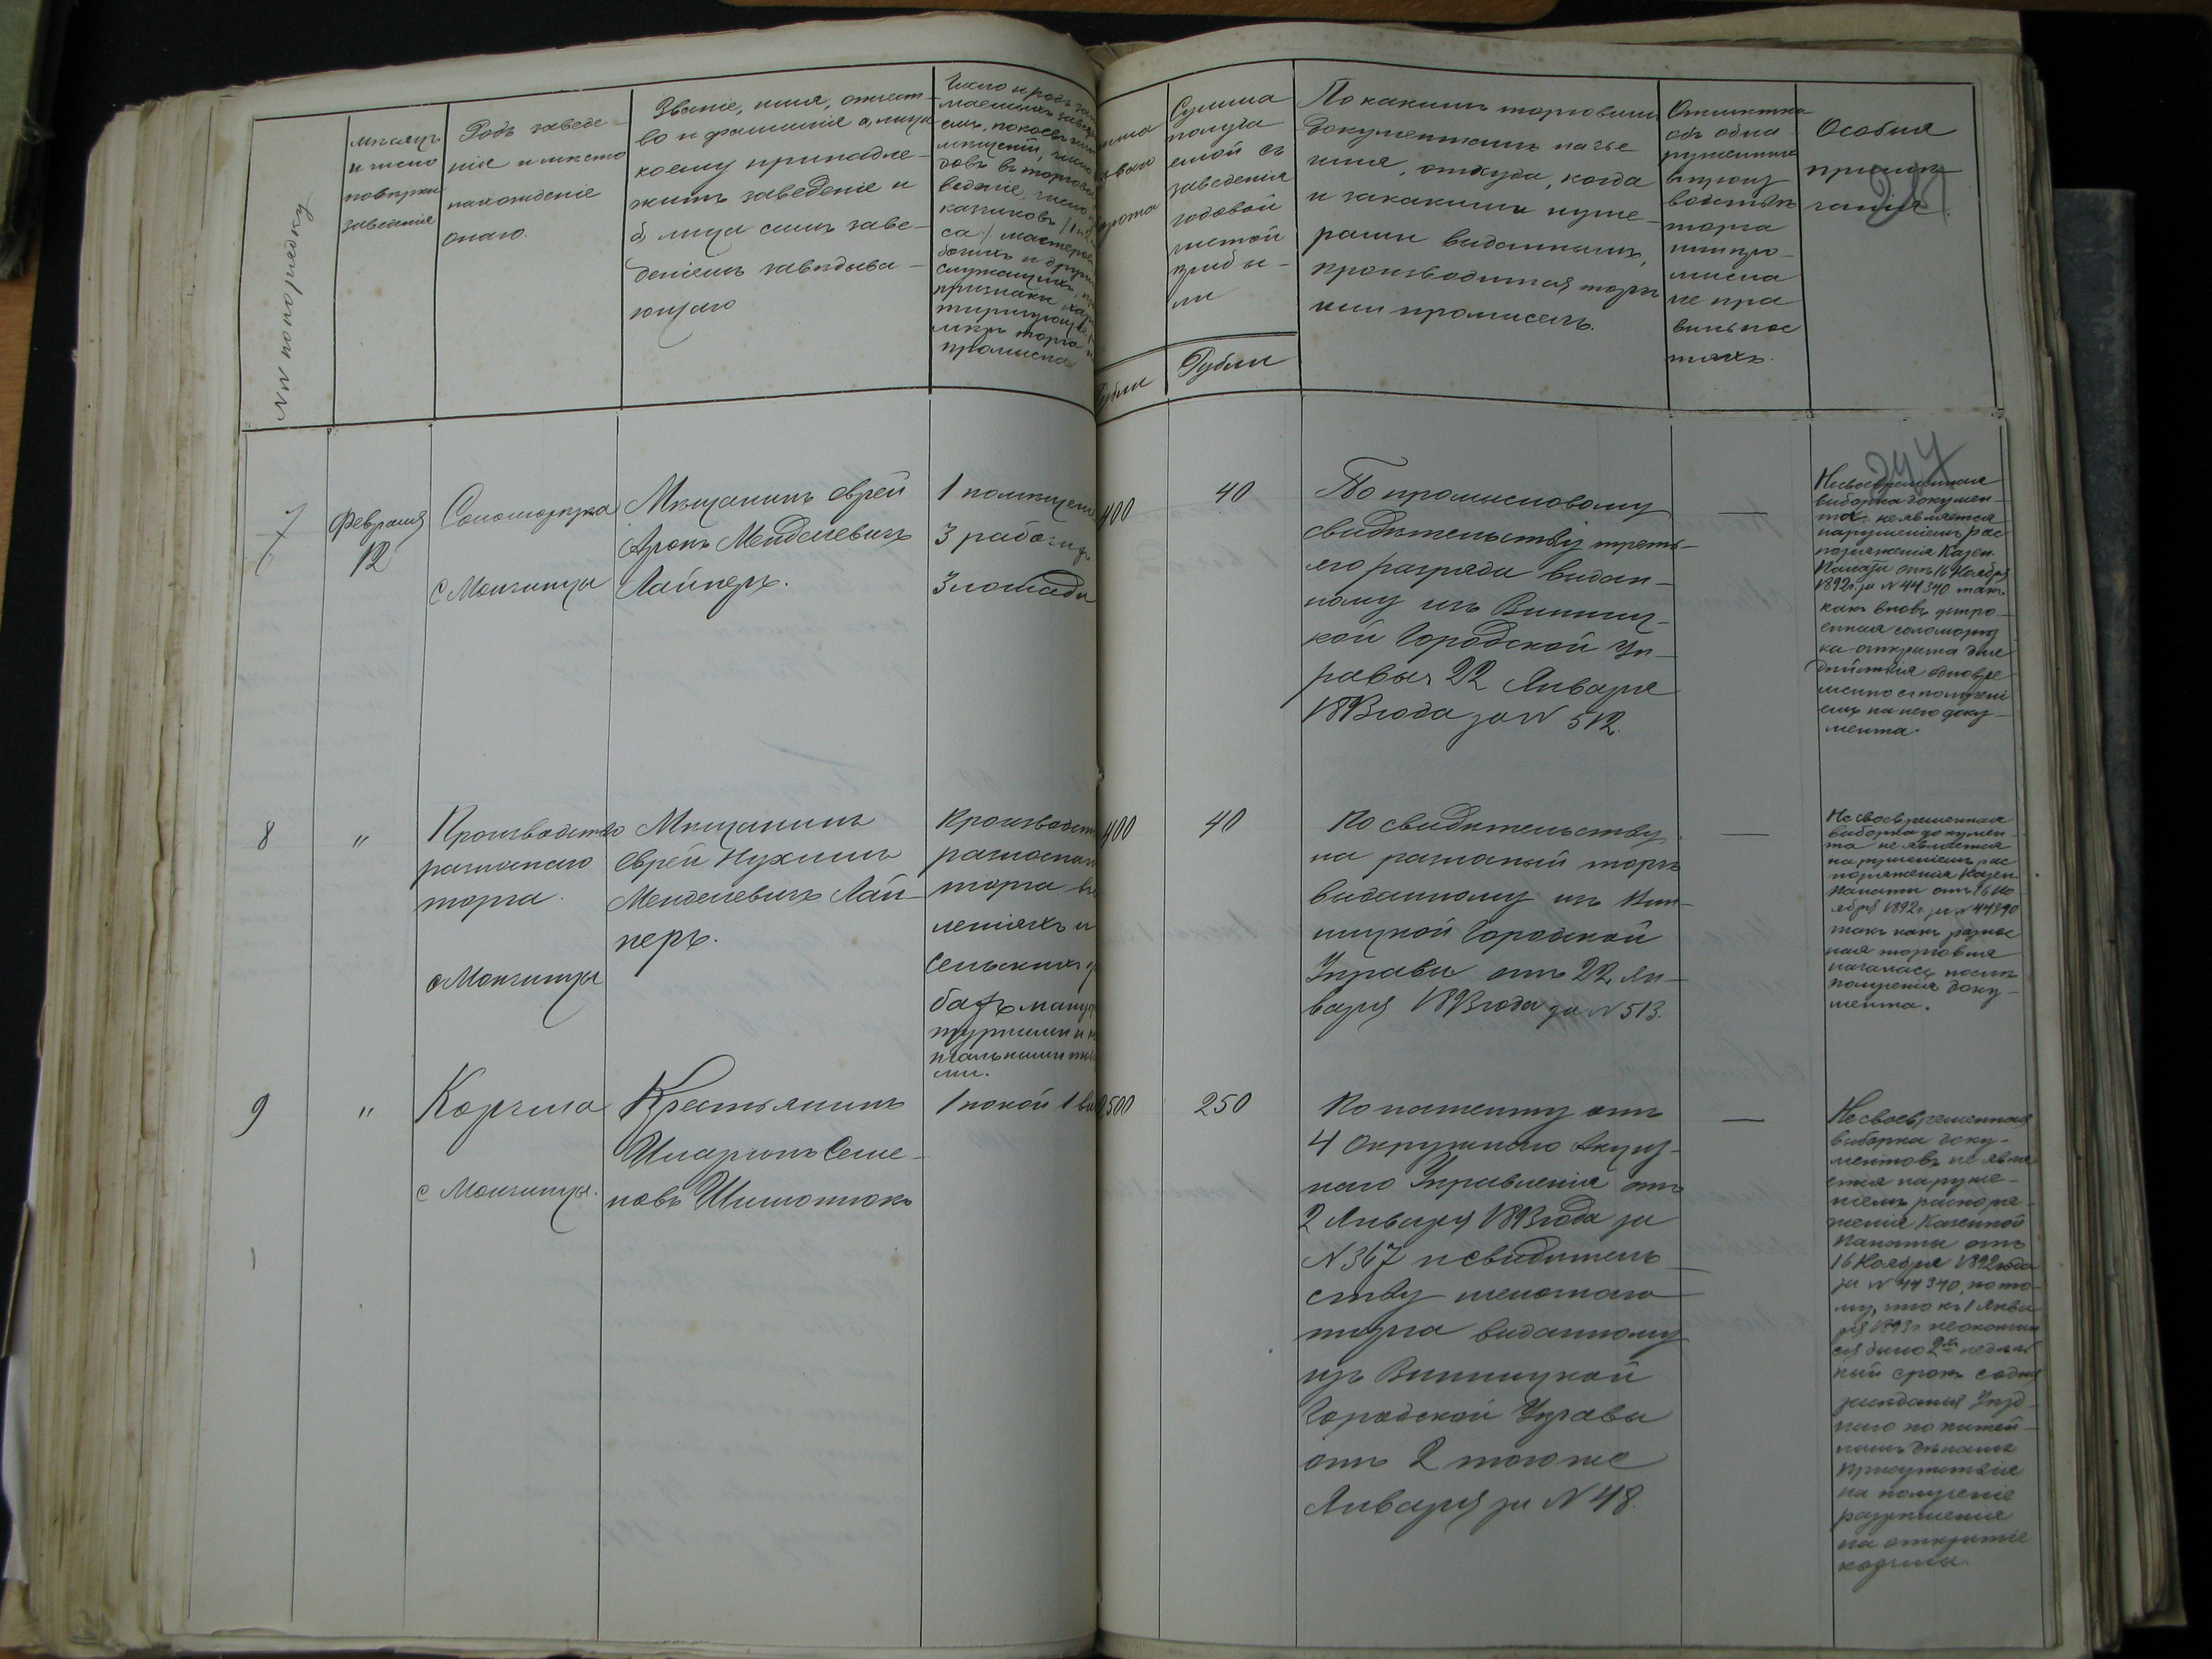 NN по порядку
мѣсяцъ
и число
повѣрки
заведенія
Родъ заведе-
нія и мѣсто
нахожденіе
онаго.
Званіе, имя, отчест-
во и фамилія а, лица
коему принадле-
житъ заведеніе и
б, лица симъ заве-
деніемъ завѣдыва-
ющаго
Число и родъ
покоевъ
въ торгов
ведніе, число
кащиковъ
са / мастеров
бочихъ и други
служащихъ
признаки хара
теризующіе
мѣръ торга
промысла
Рубли
Сумма
получа
емой съ
заведенія
годовой
чистой
прибы-
ли
Рубли
По какимъ торговымъ
документамъ на чье
имя, откуда, когда
и за какими нуме-
рами выданнымъ,
производится торгъ
или промыселъ.
Отмѣтка
объ обна-
руженныхъ
въ произ
водствѣ
торга
или про-
мысла
не пра
вильнос
тяхъ.
Особыя
примѣ-
чанія.
244
7
Февраля
12
Соломорѣзка
с Мончинцы
Мѣщанинъ еврей
Аронъ Менделевичъ
Лайнеръ.
1 помѣщені
3 рабочихъ
3 лошади
400
40
По промысловому
свидѣтельству треть-
яго разряда выдан-
ному изъ Винниц-
кой Городской Уп-
равы 22 Января
1893 года за N 512.
—
Несвоевременная
выборка докумен-
та не является
нарушеніемъ рас
поряженія Казен.
Палаты отъ 16 Ноября
1892 г. за N 44340 такъ
какъ вновь устро-
енная соломорѣз
ка открыта для
дѣйствія одновре
менно съ полученi
емъ на него доку-
мента.
8
"
Производство
разноснаго
торга.
с Мончинцы
Мѣщанинъ
еврей Нухимъ
Менделевичъ Лай-
неръ.
Производств
разноснаго
торга въ
леніяхъ и
сельскихъ
бахъ мануф
турными и
ми.
400
40
По свидѣтельству
на разносный торгъ
выданному изъ Вин-
ницкой Городской
Управы отъ 22 Ян-
варя 1893 года за N 513.
—
Несвоевременная
выборка докумен-
та не является
нарушеніемъ рас
поряженія Казен.
Палаты отъ 16 Но
ября 1892 г. за N 44340
такъ какъ разнос
ная торговля
началась послѣ
полученія доку-
мента.
9
"
Корчма
с Мончинцы.
Крестьянинъ
Иларіонъ Семе-
новъ Шимотюкъ
1 покой 1
2500
250
По патенту отъ
4 Окружнаго Акциз-
наго Управленія отъ
2 Января 1893 года за
N 367 и свидѣтель-
ству мелочнаго
торга выданному
изъ Винницкой
Городской Управы
отъ 2 того же
Января за N 48.
—
Несвоевременная
выборка доку-
ментовъ не явля
ется наруше-
ніемъ распоря-
женія Казенной
Палаты отъ
16 Ноября 1892 года
за N 44340, пото-
му, что къ 1 Янва
ря 1893 г. неокончи
ся было 2хъ недѣль
ный срокъ со дня
засѣданія Уѣзд-
наго по питей-
нымъ дѣламъ
Присутствія
на полученіе
разрѣшенія
на открытіе
корчмы.